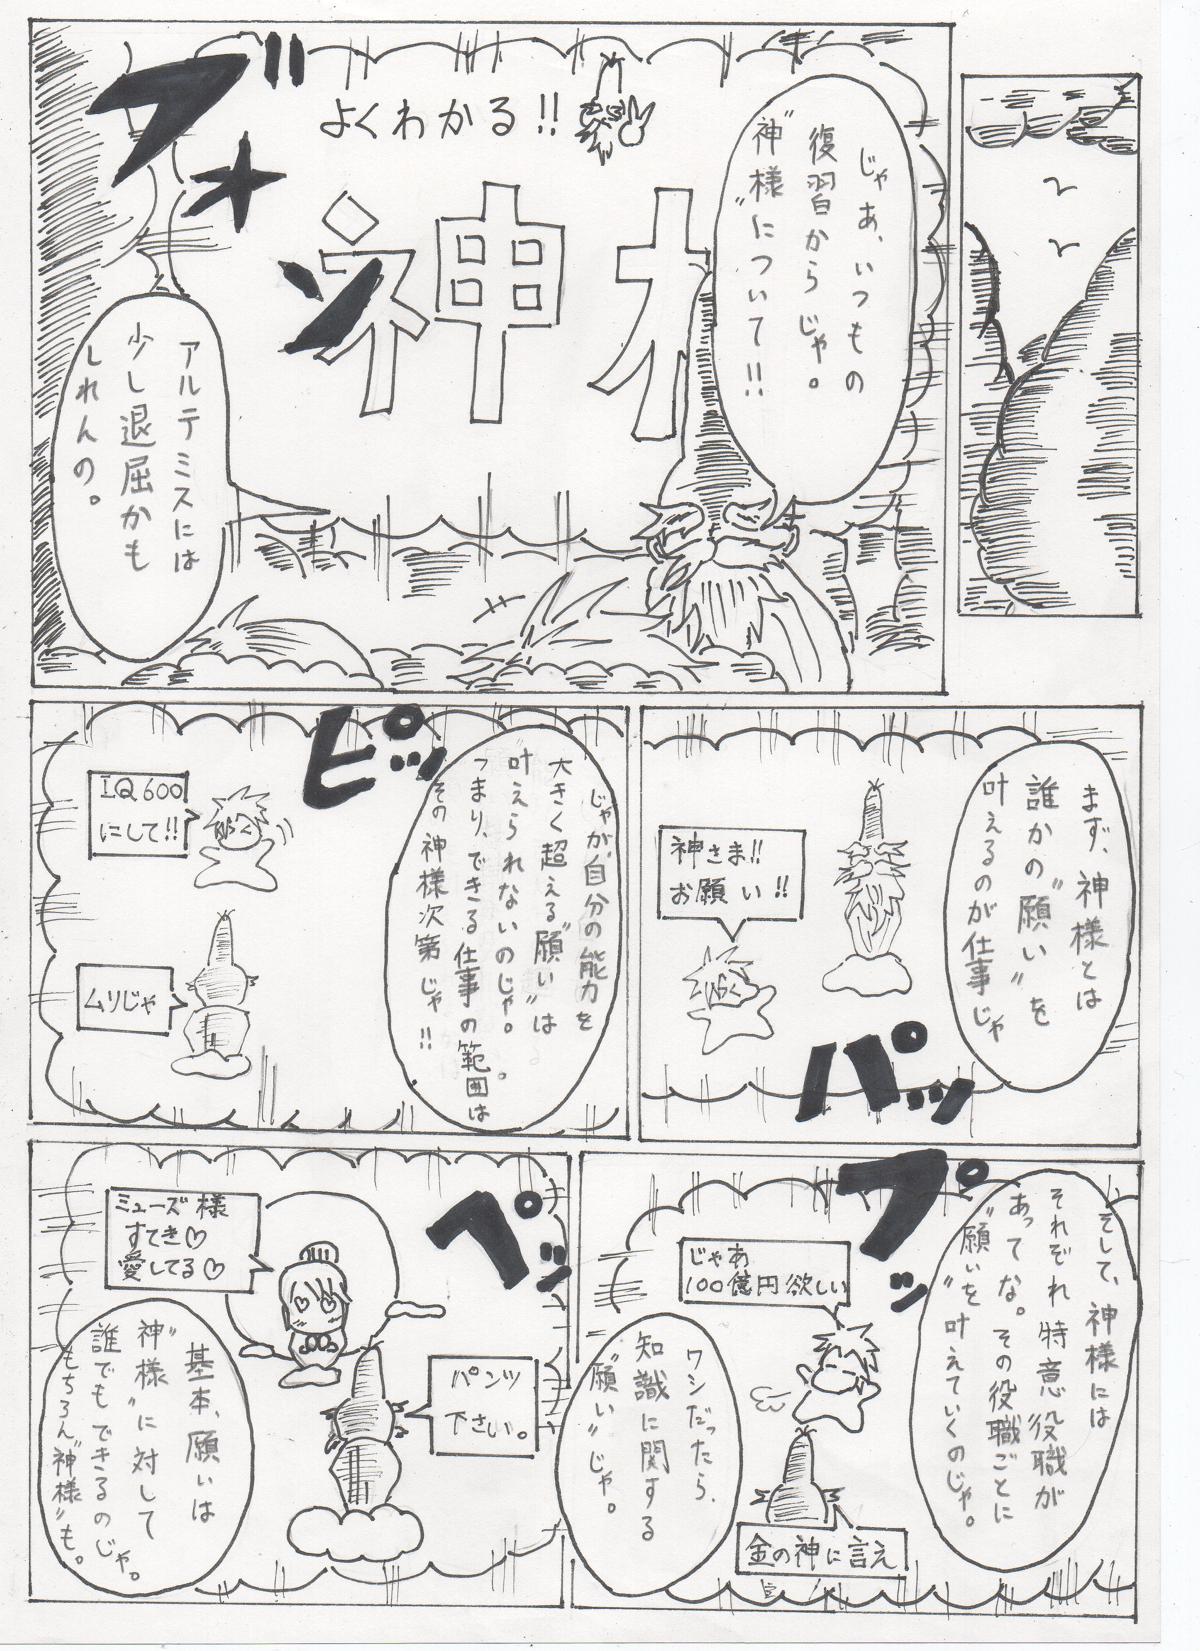 じゃあ、いつもの
復習からじゃ。
"神様"について!!
よくわかる!!
神様
ブォン
アルテミスには
少し退屈かも
しれんの。
まず、神様とは
誰かの"願い"を
叶えるのが仕事じゃ
神さま!!
お願い!!
パッ
じゃが、自分の能力を
大きく超える"願い"は
叶えられないのじゃ。
つまり、できる仕事の範囲は
その神様次第じゃ!!
ピッ
IQ600
にして!!
ムリじゃ
そして、神様には
それぞれ特意役職が
あってな。その役職ごとに
"願い"を叶えていくのじゃ。
プッ
じゃあ
100億円欲しい
金の神に言え
ワシだったら、
知識に関する
"願い"じゃ。
ペッ
ミューズ様
すてき♡
愛してる♡
パンツ
下さい。
基本、願いは
"神様"に対して
誰でもできるのじゃ。
もちろん"神様"も。